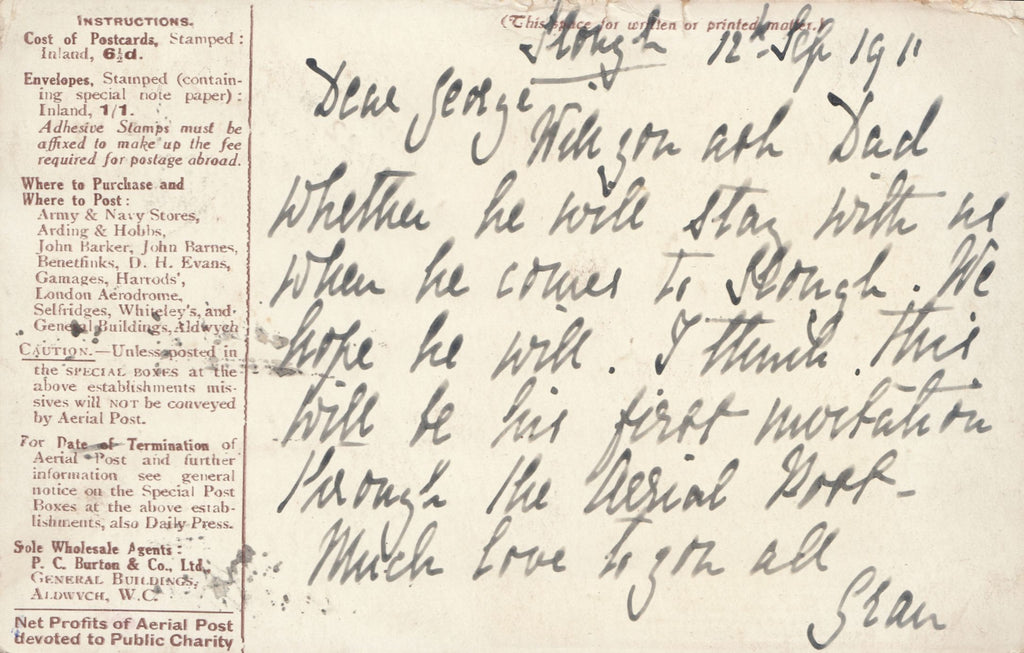 INSTRUCTIONS.
Cost of Postcards, Stamped :
Inland, 6½d.
Envelopes, Stamped (contain-
ing special note paper) :
Inland, 1/1.
Adhesive Stamps must be
affixed to make up the fee
required for postage abroad.
Where to Purchase and
Where to Post :
Army & Navy Stores,
Arding & Hobbs,
John Barker, John Barnes,
Benetfinks, D. H. Evans,
Gamages, Harrods',
London Aerodrome,
Selfridges, Whiteley's, and
General Buildings, Aldwych
CAUTION.—Unless posted in
the SPECIAL BOXES at the
above establishments mis-
sives will NOT be conveyed
by Aerial Post.
For Date of Termination of
Aerial Post and further
information see general
notice on the Special Post
Boxes at the above estab-
lishments, also Daily Press.
Sole Wholesale Agents :
P. C. Burton & Co., Ltd.,
GENERAL BUILDINGS,
ALDWYCH, W.C.
Net Profits of Aerial Post
devoted to Public Charity
(This space for written or printed matter.)
Slough 12th Sep 1911
Dear George
Will you ask Dad
whether he will stay with us
when he comes to Slough. We
hope he will. I think this
will be his first invitation
through the Aerial Post-
Much love to you all
Gran